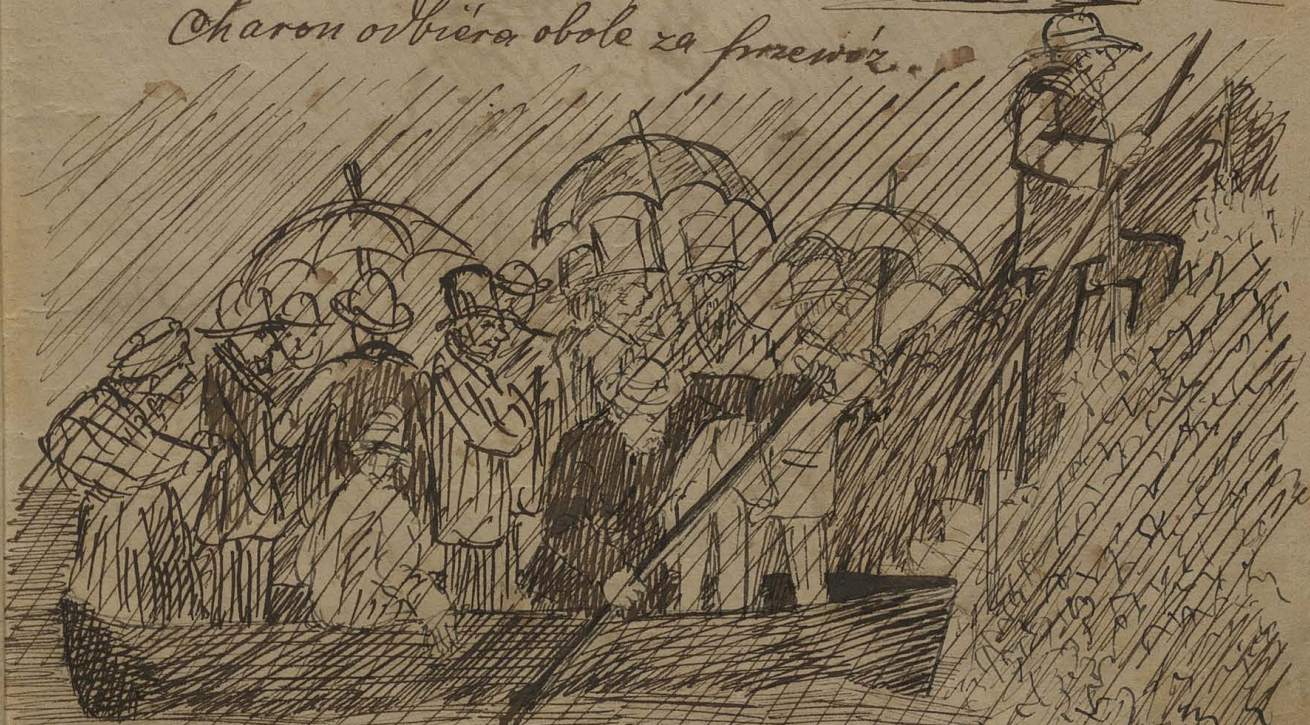 Charon odbiéra obole za przewóz.